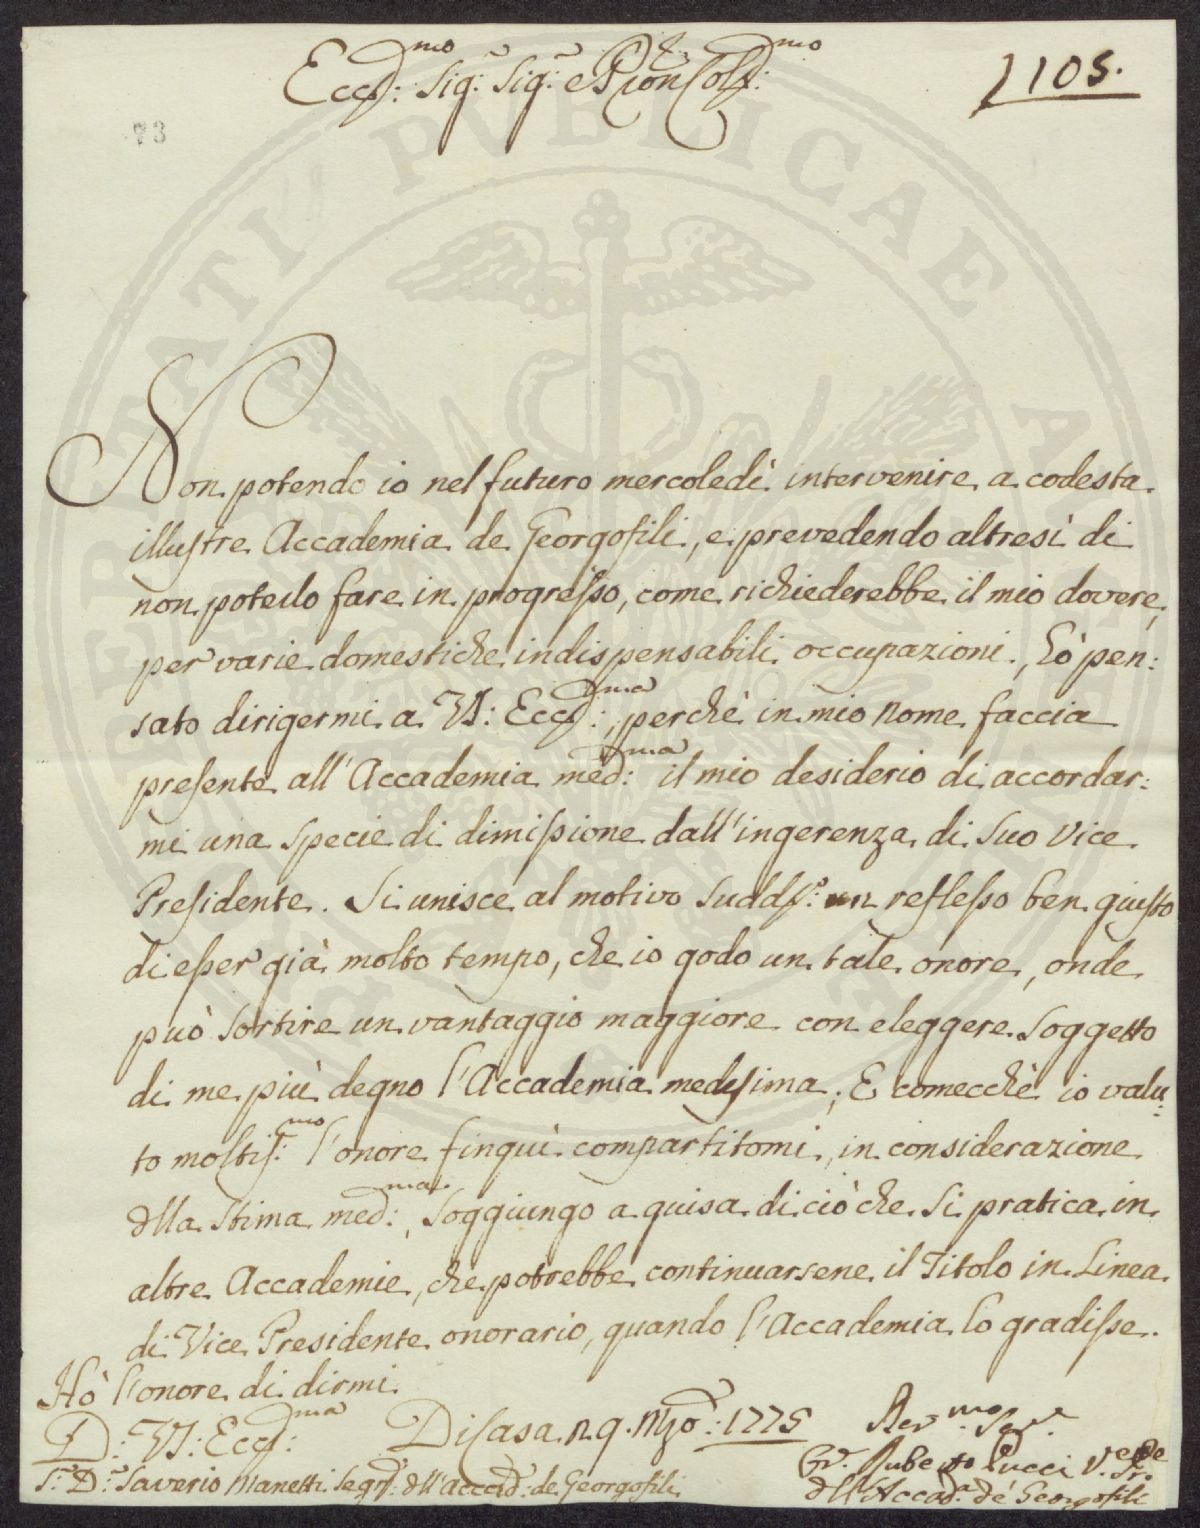 Ecc.mo Sig.r Sig.r e Pron Col.mo
1105.
73
PROSPERITATI PUBLICAE AUGENDAE
Non potendo io nel futuro mercoledì intervenire a codesta
illustre Accademia de Georgofili, e prevedendo altresì di
non poterlo fare in progresso, come richiederebbe il mio dovere,
per varie domestiche indispensabili occupazioni, hò pen:
sato dirigermi a VS: Ecc:ma, perchè in mio nome faccia
presente all'Accademia med:ma il mio desiderio di accordar:
mi una specie di dimissione dall'ingerenza di suo Vice
Presidente. Si unisce al motivo sudd.o un reflesso ben giusto
di esser già molto tempo, che io godo un tale onore, onde
può sortire un vantaggio maggiore con eleggere soggetto
di me più degno l'Accademia medesima; E comecchè io valu:
to moltis:mo l'onore finquì compartitomi, in considerazione
della stima med:ma, soggiungo a guisa di ciò che si pratica in
altre Accademie, che potrebbe continuarsene il Titolo in Linea
di Vice Presidente onorario, quando l'Accademia lo gradisse.
Hò l'onore di dirmi
D: VS: Ecc:ma
Di Casa 9. Mzo: 1775
Rev.mo Ser.e
Ruberto Pucci V.e Pr.e
dell'Accad.a de Georgofili
S.r D.r Saverio Manetti Segr: dell'Accad: de Georgofili